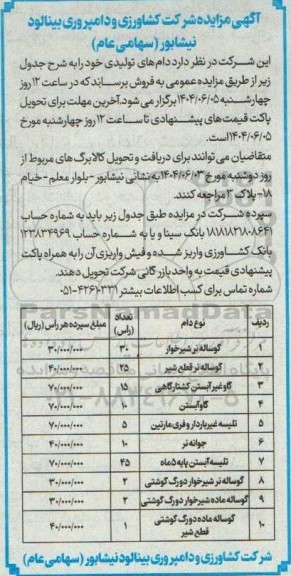 آگهی مزایده شرکت کشاورزی و دامپروری بینالود
نیشابور (سهامی عام)
این شرکت در نظر دارد دام‌های تولیدی خود را به شرح جدول
زیر از طریق مزایده عمومی به فروش برساند که در ساعت ۱۲ روز
چهارشنبه ۱۴۰۴/۰۶/۰۵ برگزار می‌شود. آخرین مهلت برای تحویل
پاکت قیمت‌های پیشنهادی تا ساعت ۱۲ روز چهارشنبه مورخ
۱۴۰۴/۰۶/۰۵ است.
متقاضیان می‌توانند برای دریافت و تحویل کالابرگ‌های مربوط از
روز دوشنبه مورخ ۱۴۰۴/۰۶/۰۳ به نشانی نیشابور - بلوار معلم - خیام
۱۸- پلاک ۳ مراجعه کنند.
سپرده شرکت در مزایده طبق جدول زیر باید به شماره حساب
بانک سینا و یا به شماره حساب ۱۲۳۸۳۴۹۶۹
بانک کشاورزی واریز شده و فیش واریزی آن را به همراه پاکت
پیشنهادی قیمت به واحد بازرگانی شرکت تحویل دهند.
شماره تماس برای کسب اطلاعات بیشتر
ردیف نوع دام تعداد (راس) مبلغ سپرده هر راس (ریال)
۱ گوساله نر شیرخوار ۳۰ ۳۰/۰۰۰/۰۰۰
۲ گوساله نر قطع شیر ۲۵ ۴۰/۰۰۰/۰۰۰
۳ گاو غیر آبستن کشتارگاهی ۱۵ ۷۰/۰۰۰/۰۰۰
۴ گاو آبستن ۱۰ ۷۰/۰۰۰/۰۰۰
۵ تلیسه غیرباردار و فری مارتین ۵ ۷۰/۰۰۰/۰۰۰
۶ جوانه نر ۱۰ ۴۰/۰۰۰/۰۰۰
۷ تلیسه آبستن پایه ۵ ماه ۴۵ ۷۰/۰۰۰/۰۰۰
۸ گوساله نر شیرخوار دورگ گوشتی ۲ ۳۰/۰۰۰/۰۰۰
۹ گوساله ماده شیرخوار دورگ گوشتی ۲ ۳۰/۰۰۰/۰۰۰
۱۰ گوساله ماده دورگ گوشتی ۱ ۴۰/۰۰۰/۰۰۰
قطع شیر
شرکت کشاورزی و دامپروری بینالود نیشابور (سهامی عام)